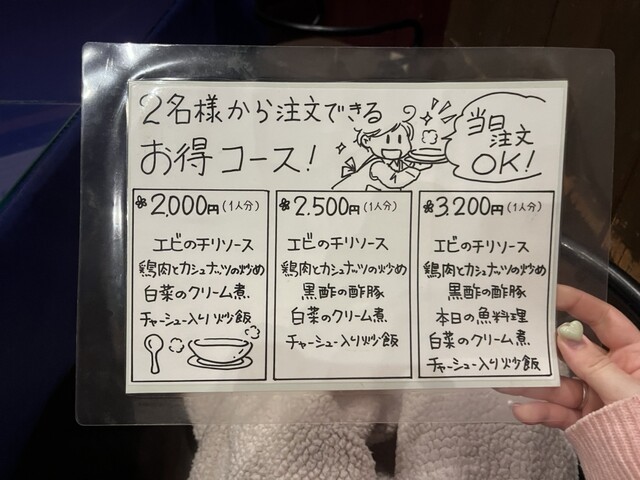 2名様から注文できる
お得コース!
当日
注文
OK!
2,000円(1人分)
エビのチリソース
鶏肉とカシュナッツの炒め
白菜のクリーム煮
チャーシュー入り炒飯
2.500円(1人分)
エビのチリソース
鶏肉とカシュナッツの炒め
黒酢の酢豚
白菜のクリーム煮
チャーシュー入り炒飯
3.200円(1人分)
エビのチリソース
鶏肉とカシュナッツの炒め
黒酢の酢豚
本日の魚料理
白菜のクリーム煮
チャーシュー入り炒飯